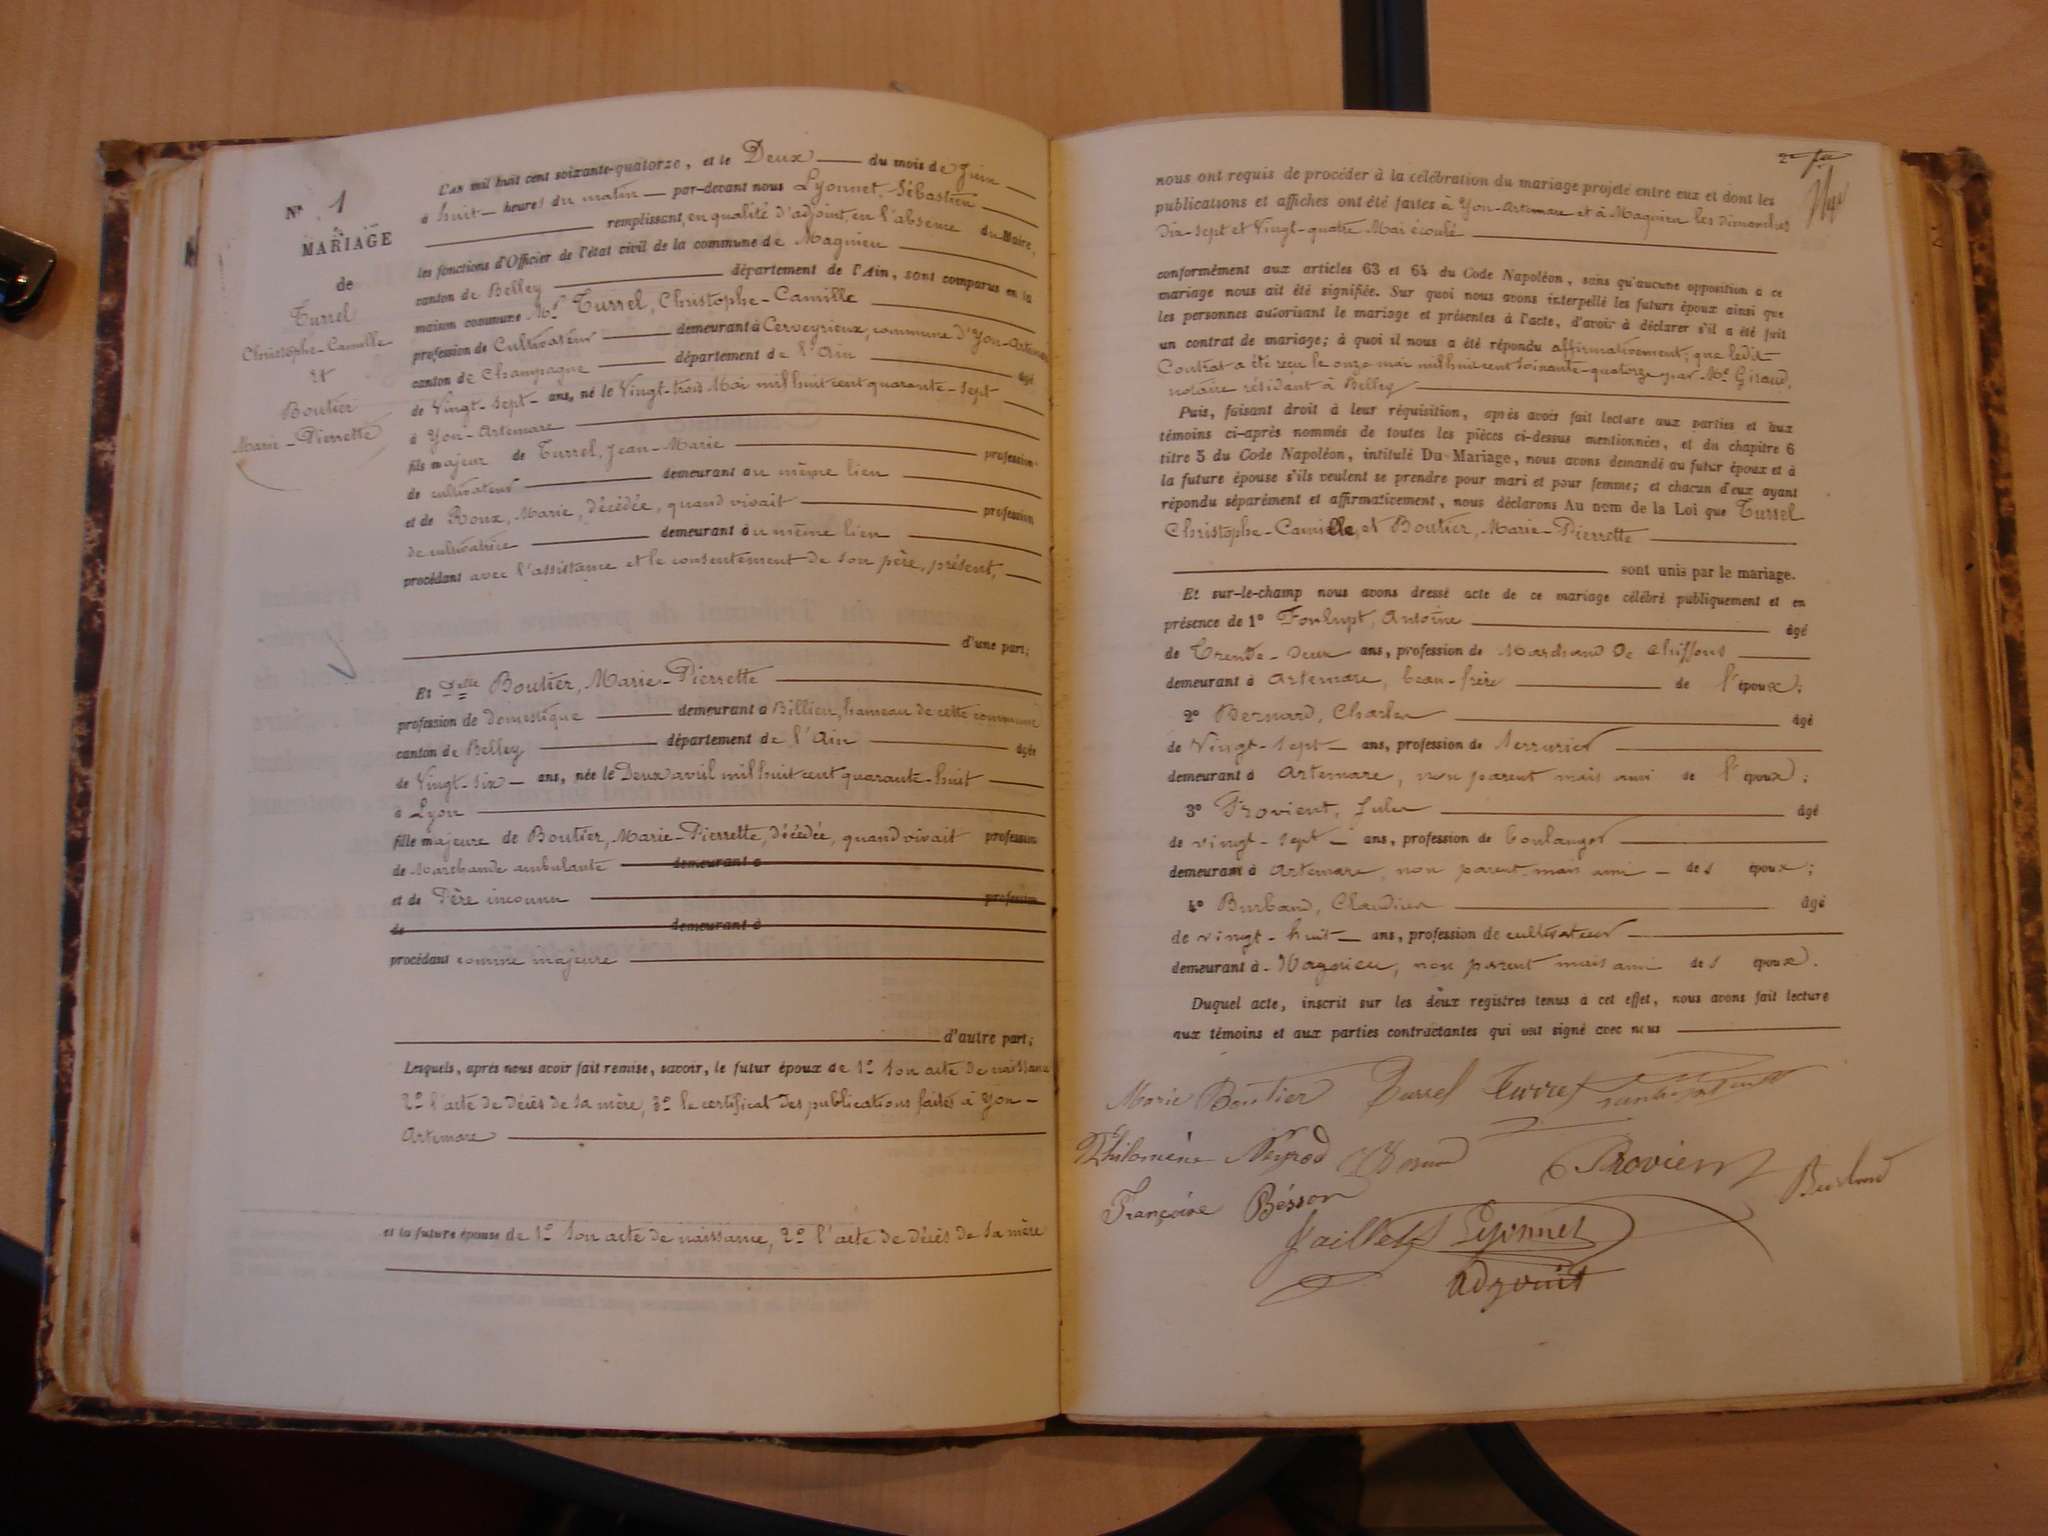 N° 1
MARIAGE
de
Turrel
Christophe-Camille
et
Boutier
Marie-Pierrette
L'an mil huit cent soixante-quatorze, et le Deux du mois de Juin
à huit heures du matin par-devant nous Lyonnet, Sébastien
remplissant, en qualité d'adjoint, en l'absence du Maire,
les fonctions d'Officier de l'état civil de la commune de Magnieu
canton de Belley département de l'Ain, sont comparus en la
maison commune Mr Turrel, Christophe-Camille
profession de Cultivateur demeurant à Cerveyrieux, commune d'Yon-Artemare
canton de Champagne département de l'Ain âgé
de Vingt-sept ans, né le Vingt-trois Mai mil huit cent quarante-sept
à Yon-Artemare
fils majeur de Turrel, Jean-Marie profession
de cultivateur demeurant au même lieu
et de Roux, Marie, décédée, quand vivait profession
de cultivatrice demeurant au même lieu
procédant avec l'assistance et le consentement de son père, présent,
d'une part;
Et Delle Boutier, Marie-Pierrette
profession de domestique demeurant à Billieu, hameau de cette commune
canton de Belley département de l'Ain âgée
de Vingt-six ans, née le Deux avril mil huit cent quarante-huit
à Lyon
fille majeure de Boutier, Marie-Pierrette, décédée, quand vivait profession
de Marchande ambulante demeurant à
et de Père inconnu profession
de demeurant à
procédant comme majeure
d'autre part;
Lesquels, après nous avoir fait remise, savoir, le futur époux de 1° son acte de naissance
2° l'acte de décès de sa mère, 3° le certificat des publications faites à Yon-
Artemare
et la future épouse de 1° son acte de naissance, 2° l'acte de décès de sa mère
2e
nous ont requis de procéder à la célébration du mariage projeté entre eux et dont les
publications et affiches ont été faites à Yon-Artemare et à Magnieu les dimanches
dix-sept et vingt-quatre Mai écoulé
conformément aux articles 63 et 64 du Code Napoléon, sans qu'aucune opposition à ce
mariage nous ait été signifiée. Sur quoi nous avons interpellé les futurs époux ainsi que
les personnes autorisant le mariage et présentes à l'acte, d'avoir à déclarer s'il a été fait
un contrat de mariage; à quoi il nous a été répondu affirmativement; que ledit
Contrat a été reçu le onze mai mil huit cent soixante-quatorze par Me Giraud,
notaire résidant à Belley
Puis, faisant droit à leur réquisition, après avoir fait lecture aux parties et aux
témoins ci-après nommés de toutes les pièces ci-dessus mentionnées, et du chapitre 6
titre 5 du Code Napoléon, intitulé Du Mariage, nous avons demandé au futur époux et à
la future épouse s'ils veulent se prendre pour mari et pour femme; et chacun d'eux ayant
répondu séparément et affirmativement, nous déclarons Au nom de la Loi que Turrel
Christophe-Camille, et Boutier, Marie-Pierrette
sont unis par le mariage.
Et sur-le-champ nous avons dressé acte de ce mariage célébré publiquement et en
présence de 1° Antoine âgé
de Trente-deux ans, profession de Marchand de chiffons
demeurant à Artemare, beau-frère de l'époux;
2° Bernard, Charles âgé
de Vingt-sept ans, profession de serrurier
demeurant à Artemare, non parent mais ami de l'époux;
3° Provient, Jules âgé
de vingt-sept ans, profession de boulanger
demeurant à Artemare, non parent mais ami des époux;
4° Burbaud, Claudius âgé
de vingt-huit ans, profession de cultivateur
demeurant à Magnieu, non parent mais ami des époux.
Duquel acte, inscrit sur les deux registres tenus à cet effet, nous avons fait lecture
aux témoins et aux parties contractantes qui ont signé avec nous
Marie Boutier Turrel Turrel
Philomène Neyrod Provient
Françoise Bésson
Jaillet Lyonnet
adjouit